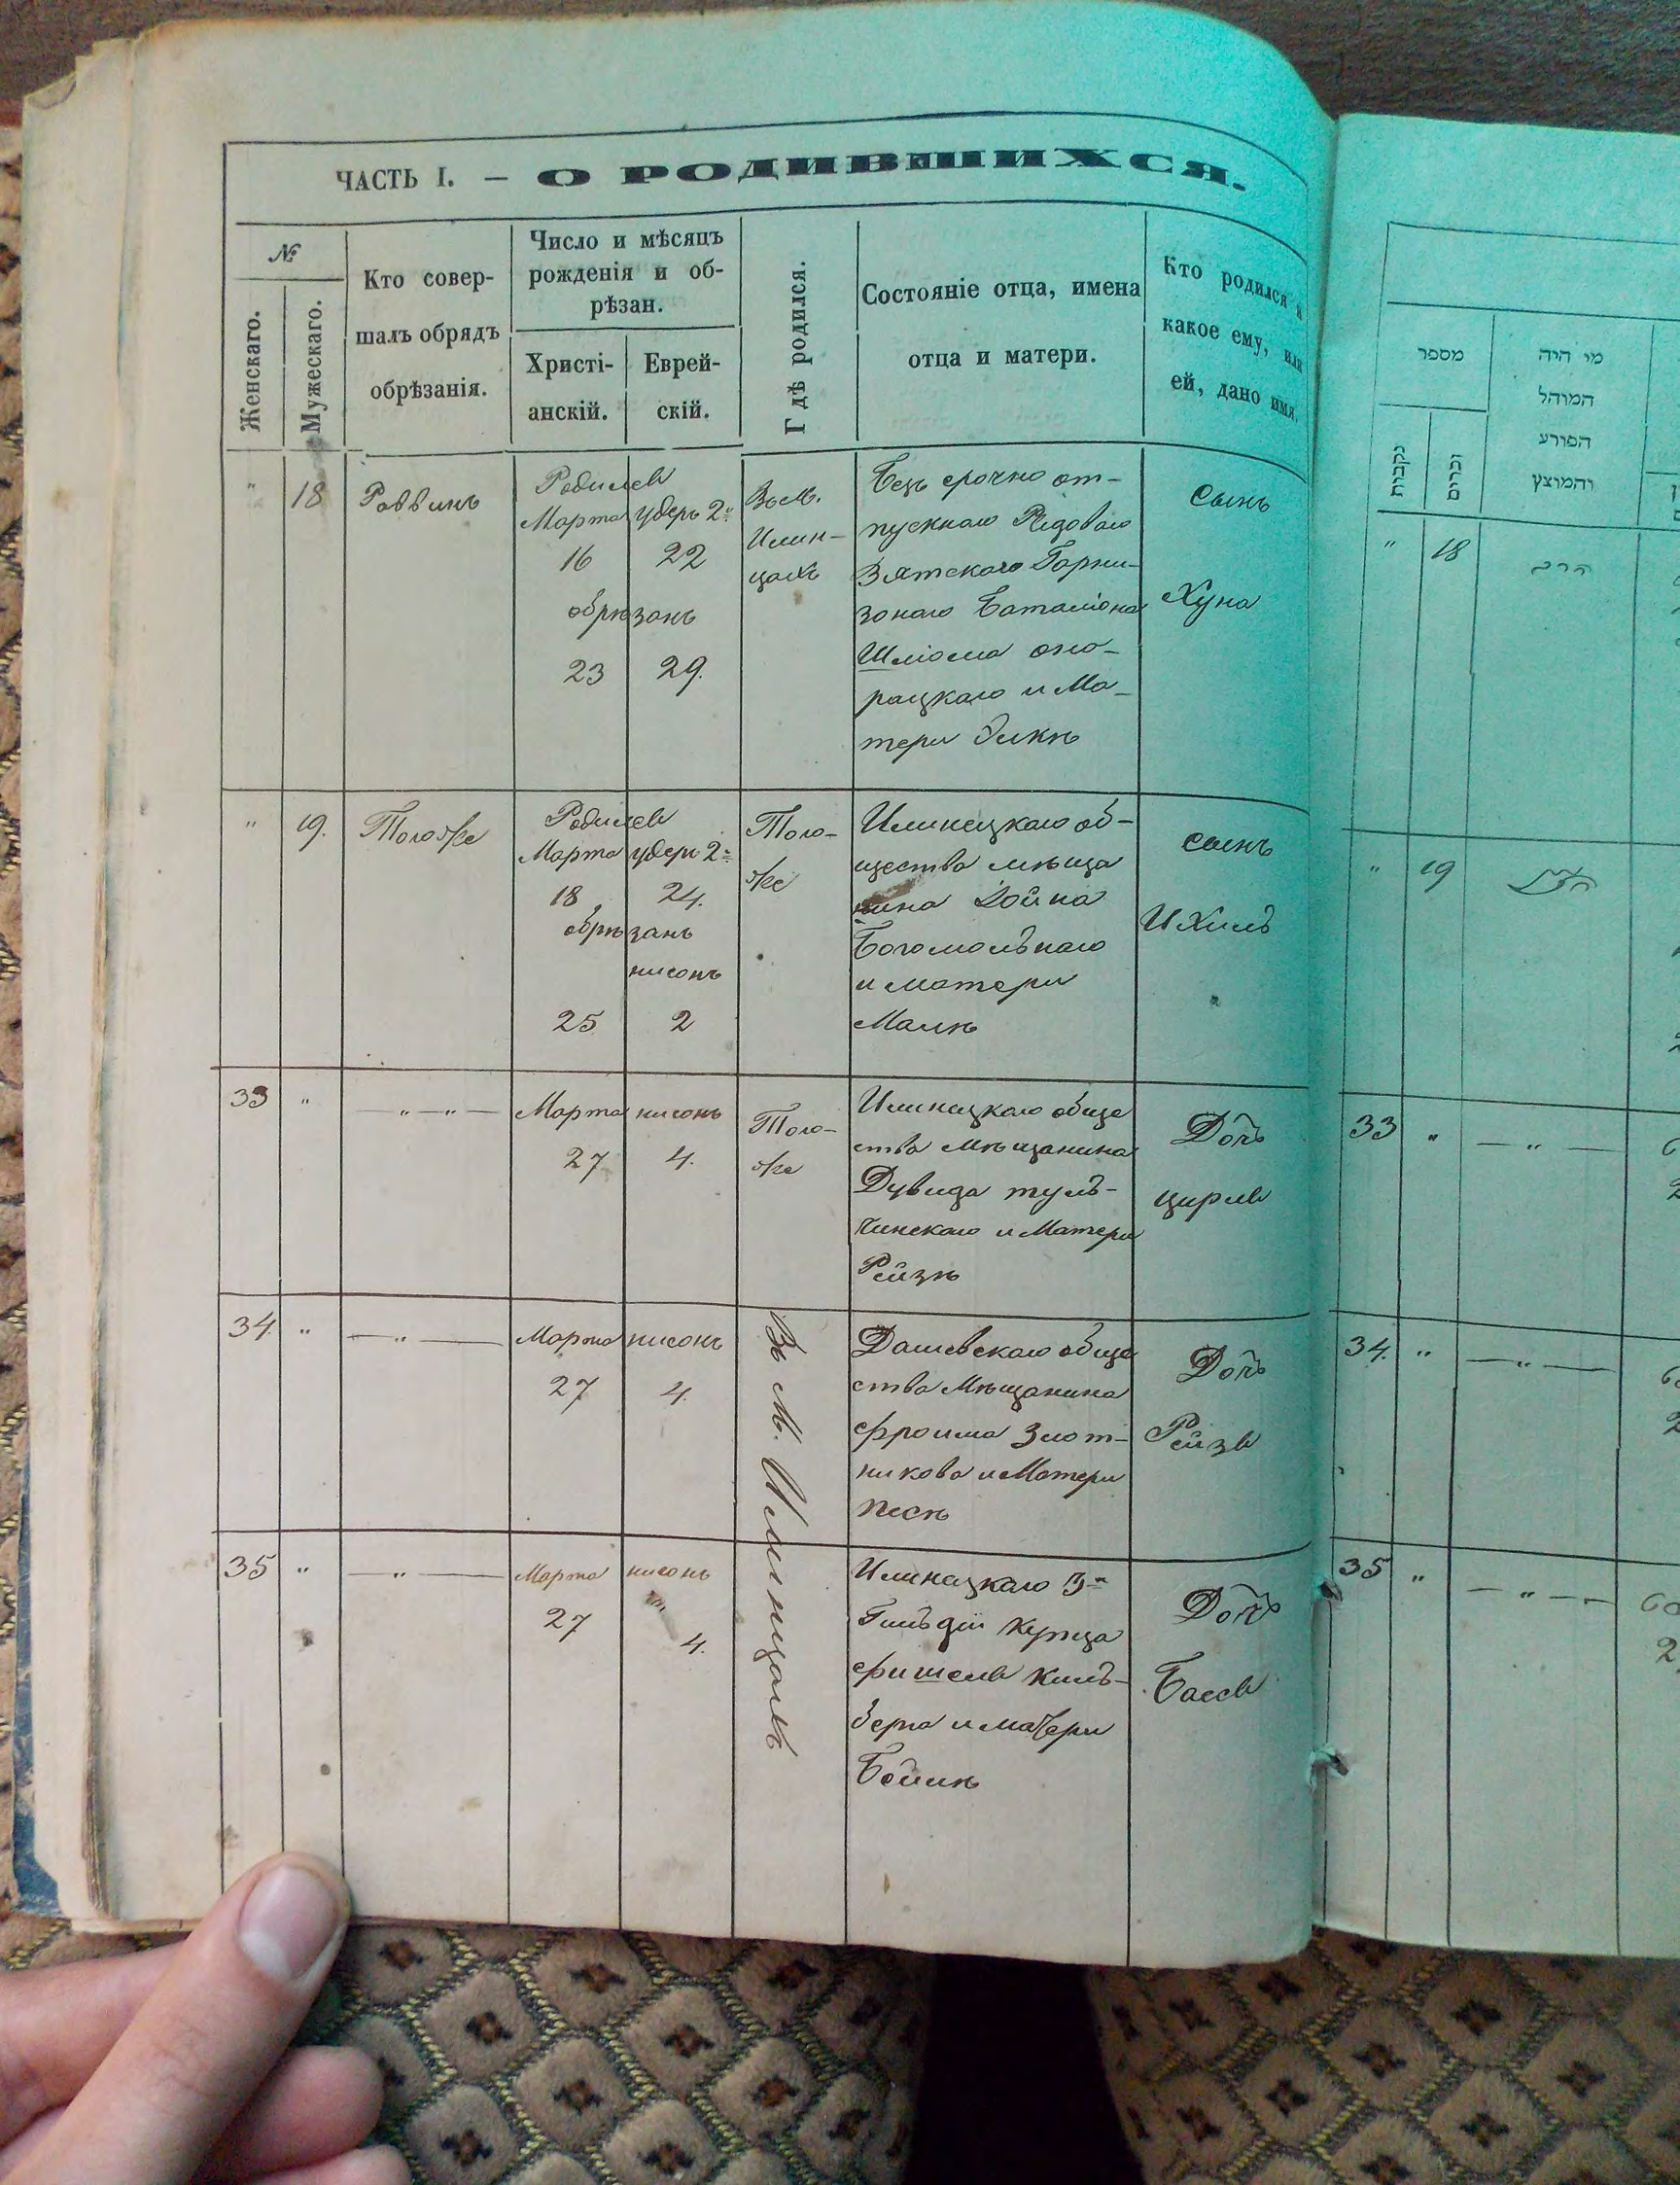 ЧАСТЬ I. – О РОДИВШИХСЯ.
№
Женскаго.
Мужескаго.
Кто совер-
шалъ обрядъ
обрѣзанія.
Число и мѣсяцъ
рожденія и об-
рѣзан.
Христі-
анскій.
Еврей-
скій.
Гдѣ родился.
Состояніе отца, имена
отца и матери.
Кто родился и
какое ему, или
ей, дано имя.
" 18 Раввинъ
Родился
Марта удеръ 2й
16 22
обрѣзанъ
23 29.
Въ м.
Илин-
цахъ
Безъ срочно от-
пускнаго Рядоваго
Вятскаго Гарни-
зонаго Баталіона
Шліома
и Ма-
тери
сынъ
Хуна
" 19. Тотоже
Родился
Марта удеръ 2й
18 24.
обрѣзанъ
нисонъ
25 2
Того-
же
Илинецкаго об-
щества мѣща
нина
Богомольнаго
и матери
Малкѣ
сынъ
Ихиль
33 " — " — " —
Марта нисонъ
27 4.
Того-
же
Илинецкаго обще
ства Мѣщанина
Дувида туль-
чинскаго и Матери
Рейзѣ
Дочь
цирля
34. " — " —
Марта нисонъ
27 4.
Въ м. Илинцахъ
Дашевскаго обще
ства Мѣщанина
Фроима Злот-
никова и Матери
Песѣ
Дочь
Рейзя
35 " — " —
Марта нисонъ
27 4.
Илинецкаго 3й
Гильдіи Купца
Фишеля Киль-
и матери
Бейлѣ
Дочь
Бася
מספר
נקבות
זכרים
מי היה
המוהל
הפורע
והמוצץ
" 18 הרב
" 19
33 " — " —
34. " — " —
35 " — " —